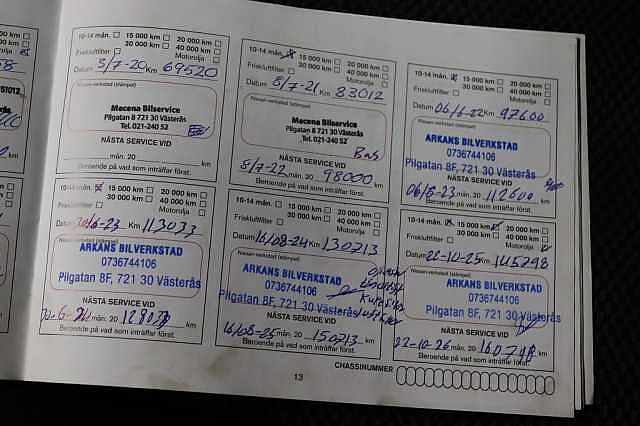 10-14 mån. 15 000 km 20 000 km
30 000 km 40 000 km
Friskluftfilter Motorolja
Datum 3/7-20 Km 69520
Nissan-verkstad (stämpel)
Mecena Bilservice
Pilgatan 8 721 30 Västerås
Tel. 021-240 52
NÄSTA SERVICE VID
mån. 20 km
Beroende på vad som inträffar först.
10-14 mån. 15 000 km 20 000 km
30 000 km 40 000 km
Friskluftfilter Motorolja
Datum 8/7-21 Km 83012
Nissan-verkstad (stämpel)
Mecena Bilservice
Pilgatan 8 721 30 Västerås
Tel. 021-240 52
NÄSTA SERVICE VID
8/7-22 mån. 20 98000 km
Beroende på vad som inträffar först.
10-14 mån. 15 000 km 20 000 km
30 000 km 40 000 km
Friskluftfilter Motorolja
Datum 06/6-22 Km 97600
Nissan-verkstad (stämpel)
ARKANS BILVERKSTAD
0736744106
Pilgatan 8F, 721 30 Västerås
NÄSTA SERVICE VID
06/6-23 mån. 20 112600 km
Beroende på vad som inträffar först.
10-14 mån. 15 000 km 20 000 km
30 000 km 40 000 km
Friskluftfilter Motorolja
Datum 20/6-23 Km 113073
ARKANS BILVERKSTAD
0736744106
Pilgatan 8F, 721 30 Västerås
NÄSTA SERVICE VID
mån. 20 128073 km
Beroende på vad som inträffar först.
10-14 mån. 15 000 km 20 000 km
30 000 km 40 000 km
Friskluftfilter Motorolja
Datum 16/08-24 Km 130713
Nissan-verkstad (stämpel)
ARKANS BILVERKSTAD
0736744106
Pilgatan 8F, 721 30 Västerås
NÄSTA SERVICE VID
16/08-25 mån. 20 150713 km
Beroende på vad som inträffar först.
10-14 mån. 15 000 km 20 000 km
30 000 km 40 000 km
Friskluftfilter Motorolja
Datum 22-10-25 Km 145798
Nissan-verkstad (stämpel)
ARKANS BILVERKSTAD
0736744106
Pilgatan 8F, 721 30 Västerås
NÄSTA SERVICE VID
22-10-26 mån. 20 160798 km
Beroende på vad som inträffar först.
CHASSINUMMER
13